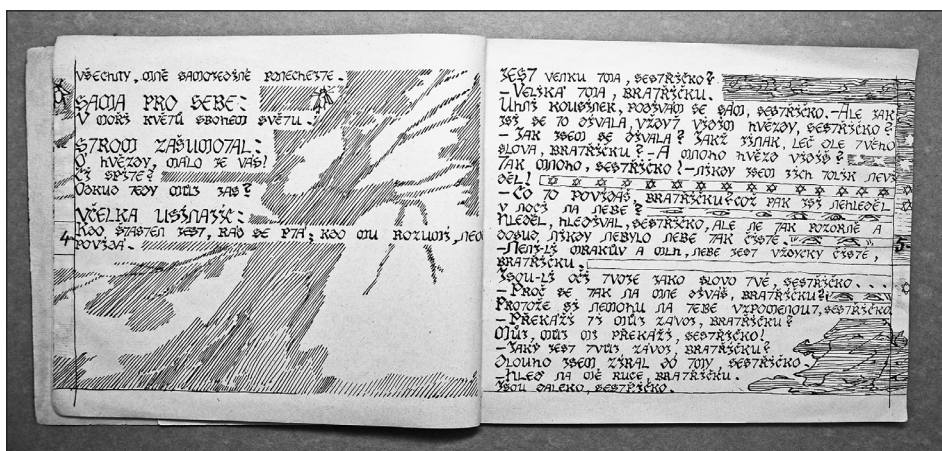 VŠECHNY, MNĚ SAMOJEDINĚ PONECHEJTE.
SAMA PRO SEBE:
V MOŘI KVĚTŮ SBOHEM SVĚTU.
STROM ZAŠUMOTAL:
Ó HVĚZDY, MÁLO JE VÁS!
ČI SPÍTE?
ODKUD TEDY MŮJ JAS?
VČELKA USÍNAJÍC:
KDO ŠŤASTEN JEST, RÁD SE PTÁ; KDO MU ROZUMÍ,
4
POVÍDÁ.
JEST VENKU TMA, SESTŘIČKO?
– VELIKÁ TMA, BRATŘÍČKU.
UHNI KOUSÍNEK, PODÍVÁM SE SÁM, SESTŘIČKO. – ALE JAK
JSI SE TO DÍVALA, VŽDYŤ VIDÍM HVĚZDY, SESTŘIČKO?
– JAK JSEM SE DÍVALA? JAKŽ JINAK, LEČ DLE TVÉHO
SLOVA, BRATŘÍČKU? – A MNOHO HVĚZD VIDÍŠ?
TAK MNOHO, SESTŘIČKO! – NIKDY JSEM JICH TOLIK NEVI
DĚL!
– CO TO POVÍDÁŠ, BRATŘÍČKU? COŽ PAK JSI NEHLEDĚL
V NOCI NA NEBE?
HLEDĚL, HLEDÍVAL, SESTŘIČKO, ALE NE TAK POZORNĚ A
DOSUD NIKDY NEBYLO NEBE TAK ČISTÉ.
5
– NENÍ-LI MRAKŮV A MLH, NEBE JEST VŽDYCKY ČISTÉ,
BRATŘÍČKU.
JSOU-LI OČI TVOJE JAKO SLOVO TVÉ, SESTŘIČKO...
– PROČ SE TAK NA MNE DÍVÁŠ, BRATŘÍČKU?
PROTOŽE SI NEMOHU NA TEBE VZPOMENOUT, SESTŘIČKO
– PŘEKÁŽÍ TI MŮJ ZÁVOJ, BRATŘÍČKU?
MŮJ, MŮJ MI PŘEKÁŽÍ, SESTŘIČKO!
– JAKÝ JEST TVŮJ ZÁVOJ, BRATŘÍČKU?
DLOUHO JSEM ZÍRAL DO TMY, SESTŘIČKO.
– HLEĎ NA MÉ RUCE, BRATŘÍČKU.
JSOU DALEKO, SESTŘIČKO.